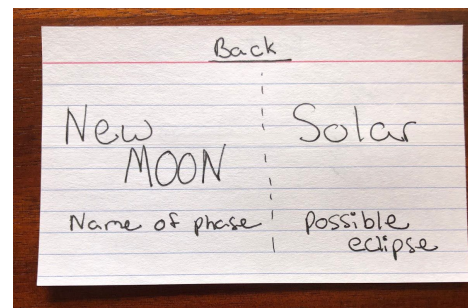 Back
New
MOON
Name of phase
Solar
possible
eclipse